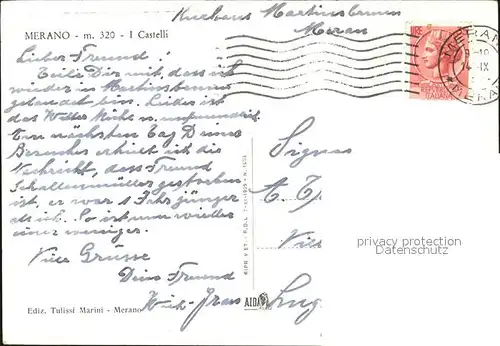 Kurhaus Martinsbrunn
Meran
MERANO - m. 320 - I Castelli
Lieber Freund!
Teile Dir mit, dass ich
wieder in Martinsbrunn
gelandet bin. Leider ist
das Wetter kühl u. unfreundl.
Am nächsten Tag Deines
Besuches erhielt ich die
Nachricht, dass Freund
Schallenmüller gestorben
ist, er war 1 Jahr jünger
als ich. So ist nun wieder
einer weniger.
Viele Grüsse
Dein Freund
Signor
privacy protection
Datenschutz
Lug
Ediz. Tulissi Marini - Merano
AIDA
MERANO
ITALIANA